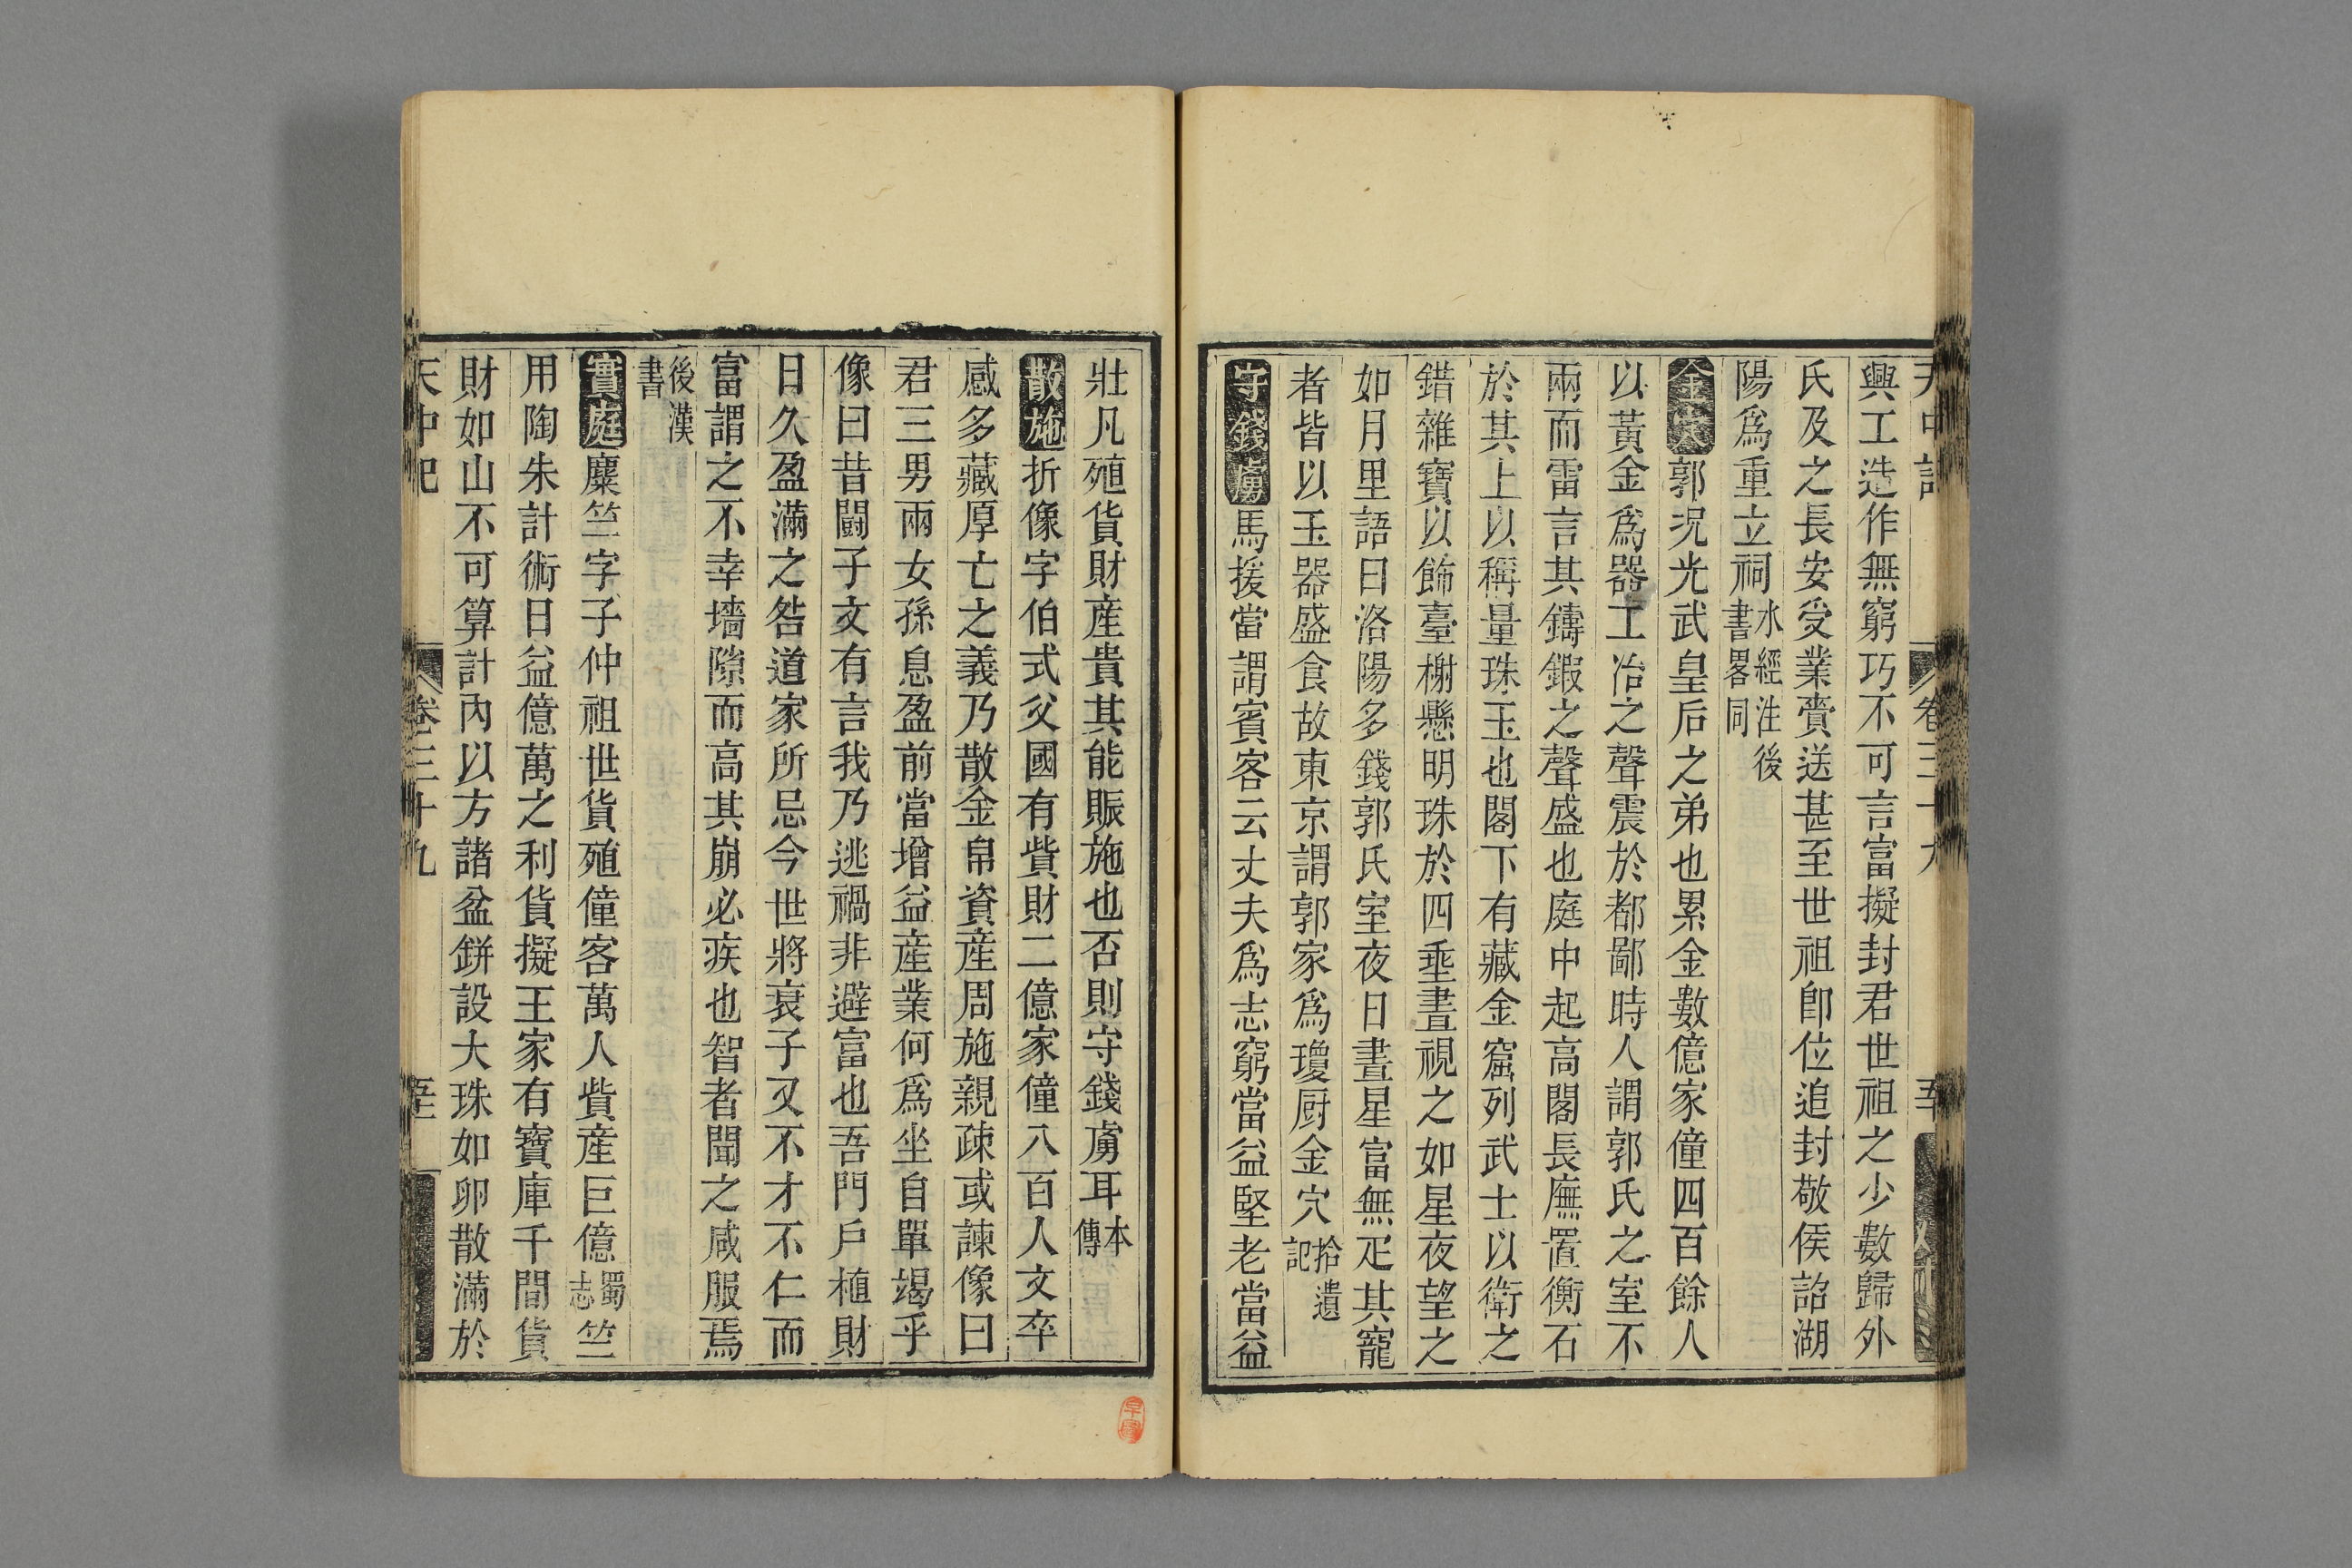 天中記 卷三十九 五十
興工造作無窮巧不可言富擬封君世祖之少數歸外
氏及之長安受業賷送甚至世祖即位追封敬侯詔湖
陽爲重立祠水經注後書畧同
金穴郭况光武皇后之弟也累金數億家僮四百餘人
以黃金爲器工冶之聲震於都鄙時人謂郭氏之室不
兩而雷言其鑄鍛之聲盛也庭中起高閣長廡置衡石
於其上以稱量珠玉也閣下有藏金窟列武士以衛之
錯雜寶以飾臺榭懸明珠於四垂晝視之如星夜望之
如月里語曰洛陽多錢郭氏室夜日晝星富無疋其寵
者皆以玉器盛食故東京謂郭家爲瓊厨金穴拾遺記
守錢虜馬援當謂賓客云丈夫爲志窮當益堅老當益
壯凡殖貨財産貴其能賑施也否則守錢虜耳本傳
散施折像字伯式父國有貲財二億家僮八百人文卒
感多藏厚亡之義乃散金帛資産周施親疎或諫像曰
君三男兩女孫息盈前當增益産業何爲坐自單竭乎
像曰昔鬪子文有言我乃逃禍非避富也吾門戶植財
日久盈滿之咎道家所忌今世將衰子又不才不仁而
富謂之不幸墻隙而高其崩必疾也智者聞之咸服焉
後漢書
實庭麋竺字子仲祖世貨殖僮客萬人貲産巨億蜀志竺
用陶朱計術日益億萬之利貨擬王家有寶庫千間貨
財如山不可算計內以方諸盆缾設大珠如卵散滿於
天中記 卷三十九